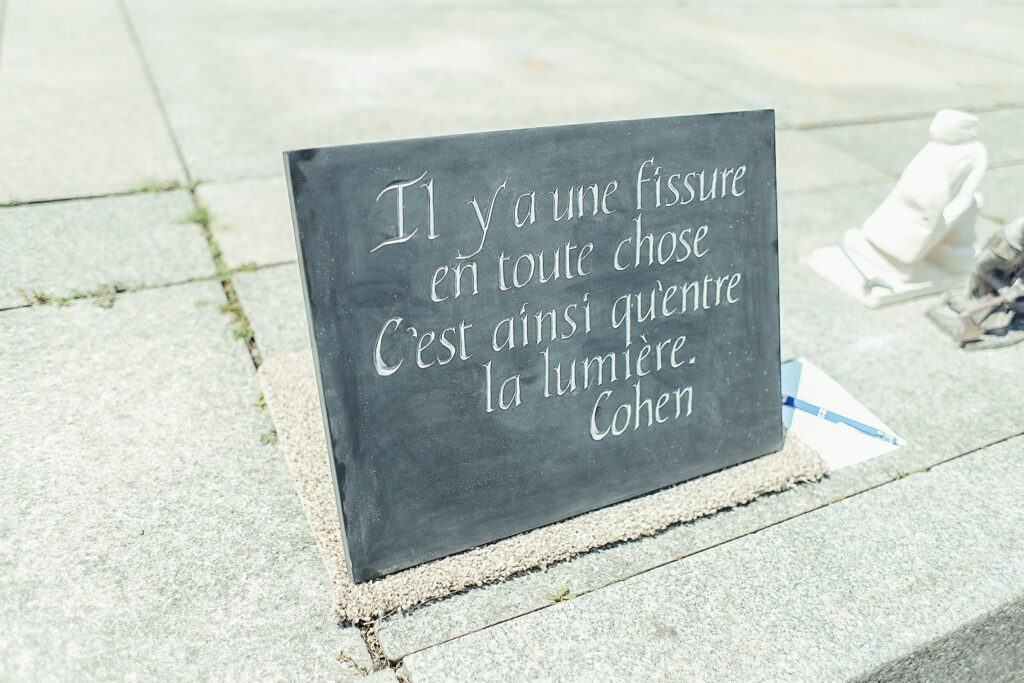 Il y'a une fissure
en toute chose
C'est ainsi qu'entre
la lumière.
Cohen